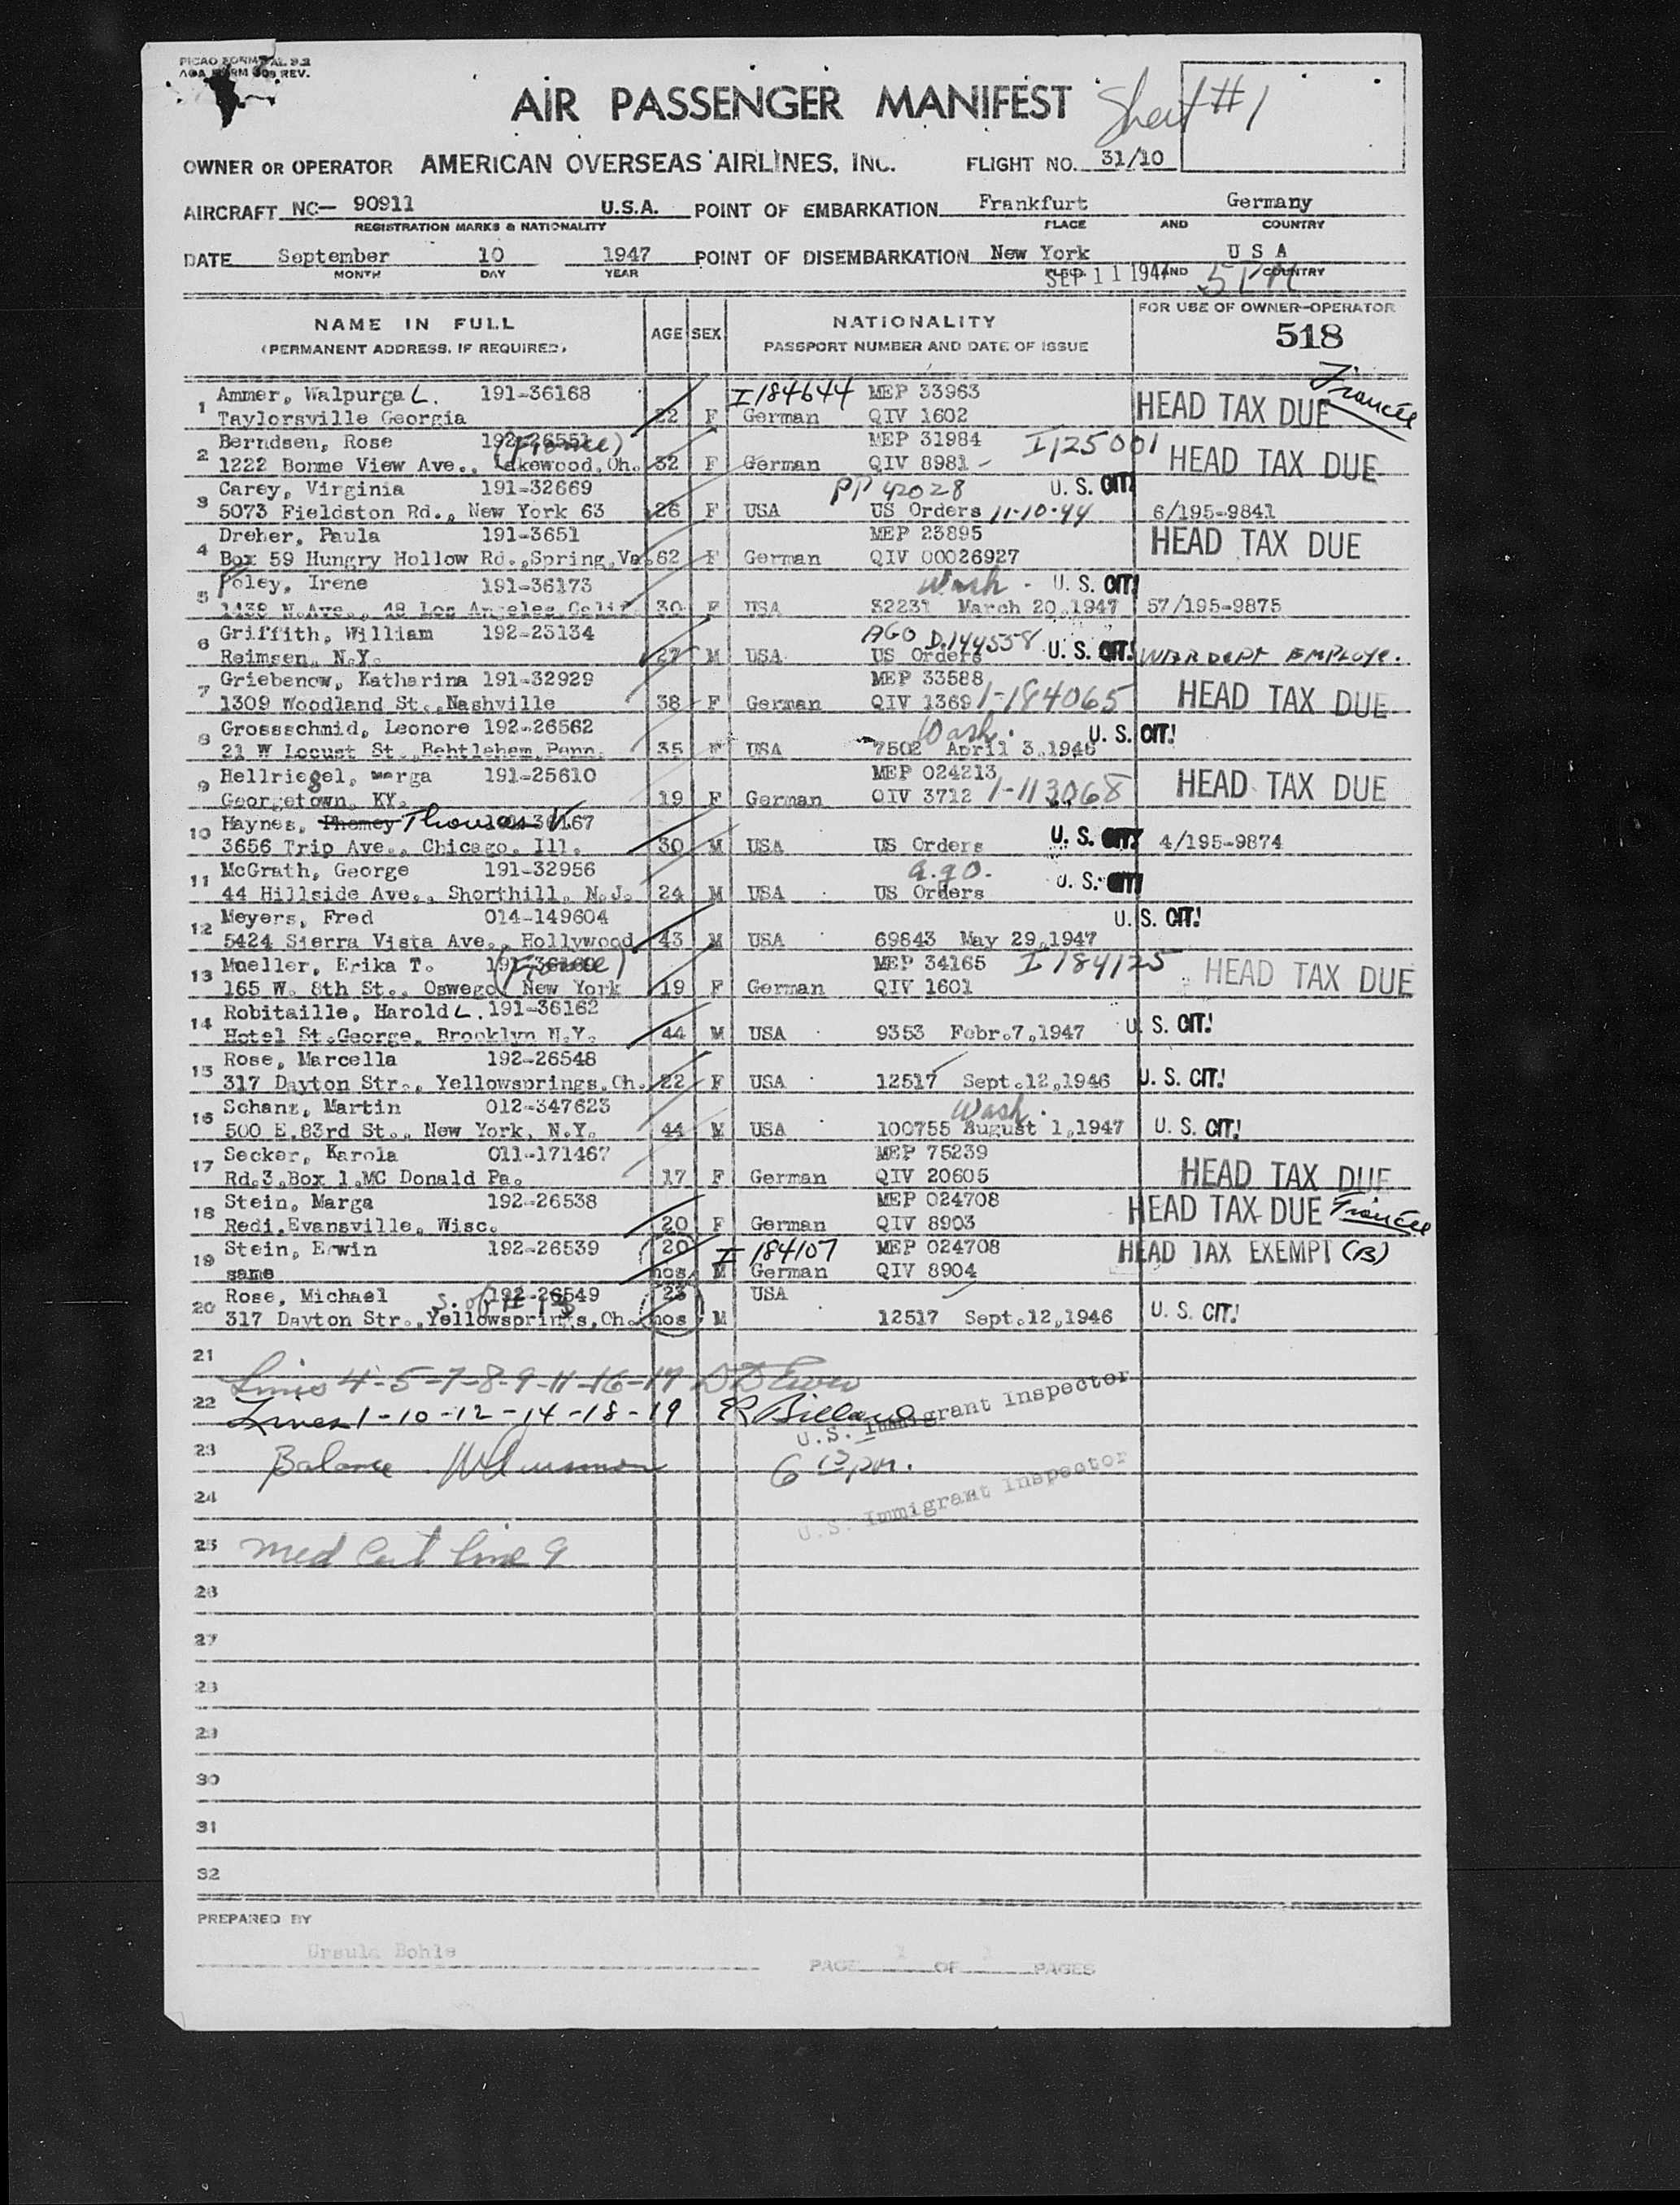 PICAO FORM AL 9.2
AOA FORM 309 REV.
AIR PASSENGER MANIFEST Sheet #1
OWNER OR OPERATOR AMERICAN OVERSEAS AIRLINES, INC. FLIGHT NO. 31/10
AIRCRAFT NC— 90911 U.S.A. POINT OF EMBARKATION Frankfurt Germany
REGISTRATION MARKS & NATIONALITY PLACE AND COUNTRY
DATE September 10 1947 POINT OF DISEMBARKATION New York U S A
MONTH DAY YEAR SEP 11 1947 AND COUNTRY
NAME IN FULL AGE SEX NATIONALITY FOR USE OF OWNER-OPERATOR
(PERMANENT ADDRESS, IF REQUIRED) PASSPORT NUMBER AND DATE OF ISSUE 518
Fiancée
1 Ammer, Walpurga L. 191-36168 I184644 MEP 33963 HEAD TAX DUE
Taylorsville Georgia 22 F German QIV 1602
2 Berndsen, Rose 192-26551 (Fiancee) MEP 31984 I125001 HEAD TAX DUE
1222 Bonme View Ave., Lakewood, Oh. 32 F German QIV 8981
3 Carey, Virginia 191-32669 PP 42028 U. S. CIT!
5073 Fieldston Rd., New York 63 26 F USA US Orders 11-10-44 6/195-9841
4 Dreher, Paula 191-3651 MEP 23895 HEAD TAX DUE
Box 59 Hungry Hollow Rd.,Spring,Va. 62 F German QIV 00026927
5 Foley, Irene 191-36173 Wash. U. S. CIT!
1438 N.Ave., 48 Los Angeles,Calif. 30 F USA 32231 March 20,1947 57/195-9875
6 Griffith, William 192-23134 AGO D.144558 U. S. CIT! WAR DEPT EMPLOYE.
Reimsen, N.Y. 27 M USA US Orders
7 Griebenow, Katharina 191-32929 MEP 33588 HEAD TAX DUE
1309 Woodland St.,Nashville 38 F German QIV 1369 I-184065
8 Grossschmid, Leonore 192-26562 Wash. U. S. CIT!
21 W Locust St.,Behtlehem,Penn. 35 F USA 7502 April 3,1946
9 Hellriegel, Marga 191-25610 MEP 024213 HEAD TAX DUE
Georgetown, KY. 19 F German QIV 3712 1-113068
10 Haynes, Phomey Thomas V. 191-36167 U. S. CIT!
3656 Trip Ave., Chicago, Ill. 30 M USA US Orders 4/195-9874
11 McGrath, George 191-32956 a.g.o. U. S. CIT!
44 Hillside Ave., Shorthill, N.J. 24 M USA US Orders
12 Meyers, Fred 014-149604 U. S. CIT!
5424 Sierra Vista Ave., Hollywood 43 M USA 69843 May 29,1947
13 Mueller, Erika T. (Fiancee) MEP 34165 I 184125 HEAD TAX DUE
165 W. 8th St., Oswego New York 19 F German QIV 1601
14 Robitaille, Harold L. 191-36162 U. S. CIT!
Hotel St.George, Brooklyn N.Y. 44 M USA 9353 Febr.7,1947
15 Rose, Marcella 192-26548
317 Dayton Str., Yellowsprings,Oh. 22 F USA 12517 Sept.12,1946 U. S. CIT!
16 Schanz, Martin 012-347623 Wash.
500 E.83rd St., New York, N.Y. 44 M USA 100755 August 1,1947 U. S. CIT!
17 Secker, Karola 011-171467 MEP 75239 HEAD TAX DUE
Rd.3,Box 1,MC Donald Pa. 17 F German QIV 20605
18 Stein, Marga 192-26538 MEP 024708 HEAD TAX DUE Fiancée
Redi,Evansville, Wisc. 20 F German QIV 8903
19 Stein, Erwin 192-26539 20 I 184107 MEP 024708 HEAD TAX EXEMPT (B)
same mos. M German QIV 8904
20 Rose, Michael 192-26549 S. of # 15 23 USA
317 Dayton Str.,Yellowsprings,Oh. mos M 12517 Sept.12,1946 U. S. CIT!
21
Lines 4-5-7-8-9-11-16-17
22 Lines 1-10-12-14-18-19
U.S. Immigrant Inspector
23 Balance 6
24 U.S. Immigrant Inspector
25 Med Cert line 9
26
27
28
29
30
31
32
PREPARED BY
Ursula Bohle
PAGE 1 OF PAGES